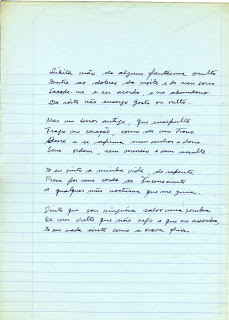 Súbita mão de algum fantasma oculto
Entre as dobras da noite e do meu sono
Sacode-me e eu acordo, e no abandono
Da noite não enxergo gesto ou vulto.
Mas um terror antigo, que insepulto
Trago no coração, como de um trono
Desce e se afirma meu senhor e dono
Sem ordem, sem meneio e sem insulto
E eu sinto a minha vida de repente
Presa por uma corda de Inconsciente
A qualquer mão nocturna que me guia.
Sinto que sou ninguém salvo uma sombra
De um vulto que não vejo e que me assombra,
E em nada existo como a treva fria.